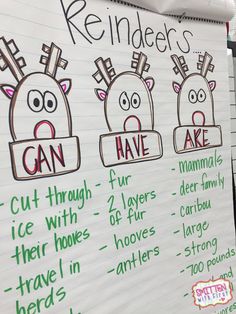 Reindeers...
CAN
HAVE
ARE
- cut through
ice with
their hooves
- travel in
herds
- fur
- 2 layers
of fur
- hooves
- antlers
- mammals
- deer family
- caribou
- large
- strong
- 700 pounds
SMITTEN
with First